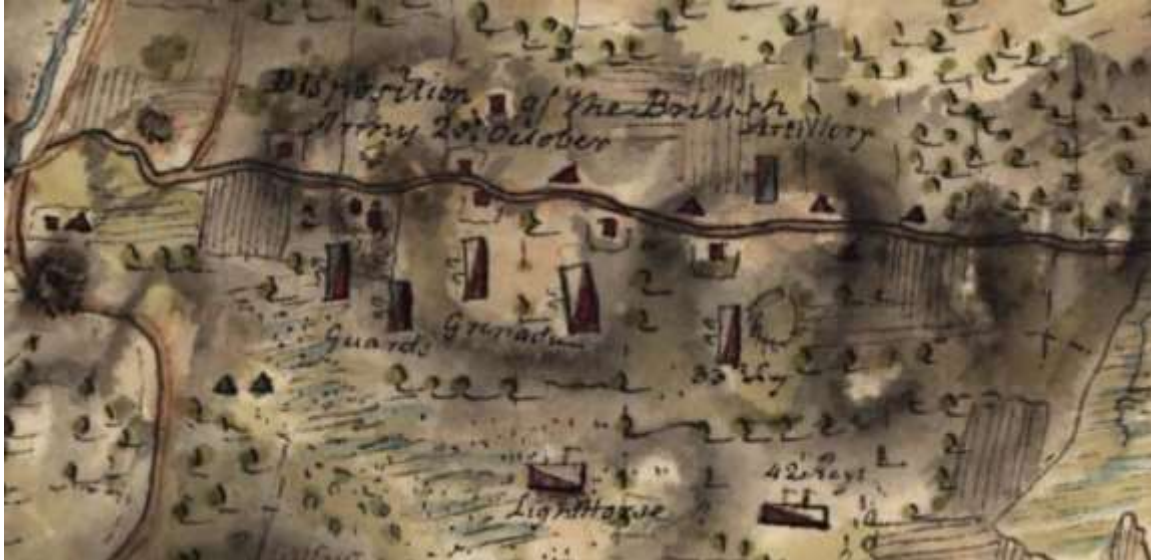 Disposition of the British
Army 20: October
Artillery
Guards
Grenadrs
33 Rgt
Light Horse
42 Regt